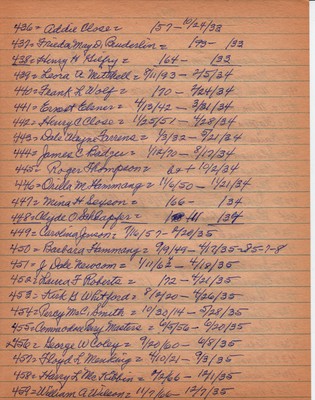 436 = Addie Close = 157 - 10/24/33
437 = Frieda May D. Penderlin = 193 - 133
438 = Henry H. = 164 - 133
439 = Leora A. Mitchell = 9/11/93 - 2/5/34
440 = Frank L. Wolf = 170 - 2/24/34
441 = Ernest Ebner = 4/10/42 - 3/31/34
442 = Henry C. Close = 1/25/51 - 4/28/34
443 = Dale Wayne Farrena = 2/3/32 - 5/21/34
444 = James C. = 1/12/70 - 8/17/34
445 = Roger Thompson = 10/2/34
446 = Orilla M. Hammang = 1/6/50 - 11/21/34
447 = Mina H. Seyson = 166 - 134
448 = Clyde O. Schlapfer = 134
449 = Carolina = 7/16/57 - 2/20/35
450 = Barbara Hammang = 9/9/49 - 4/17/35 - 85-7-8
451 = J. Dole Newcom = 4/18/35
452 = Laura F. Roberts = 172 - 4/21/35
453 = Kirk G. Whitford = 8/10/20 - 4/26/35
454 = Percy McC. Smith = 10/30/14 - 5/28/35
455 = Commodore Perry = 4/5/56 - 6/20/35
456 = George W. Coley = 9/20/60 - 6/8/35
457 = Floyd L. = 4/10/21 - 9/3/35
458 = Harry L. McKibbin = 9/2/66 - 12/1/35
459 = William A. Wilson = 11/7/66 - 12/7/35